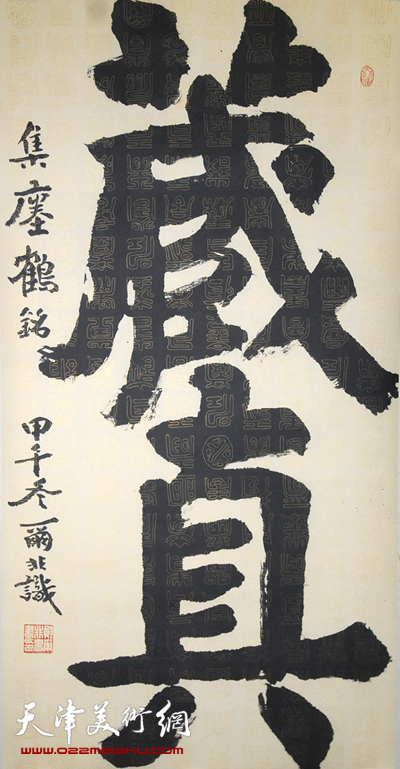 藏真
集瘞鶴銘
甲午冬爾非識
天津美術網
www.022meishu.com